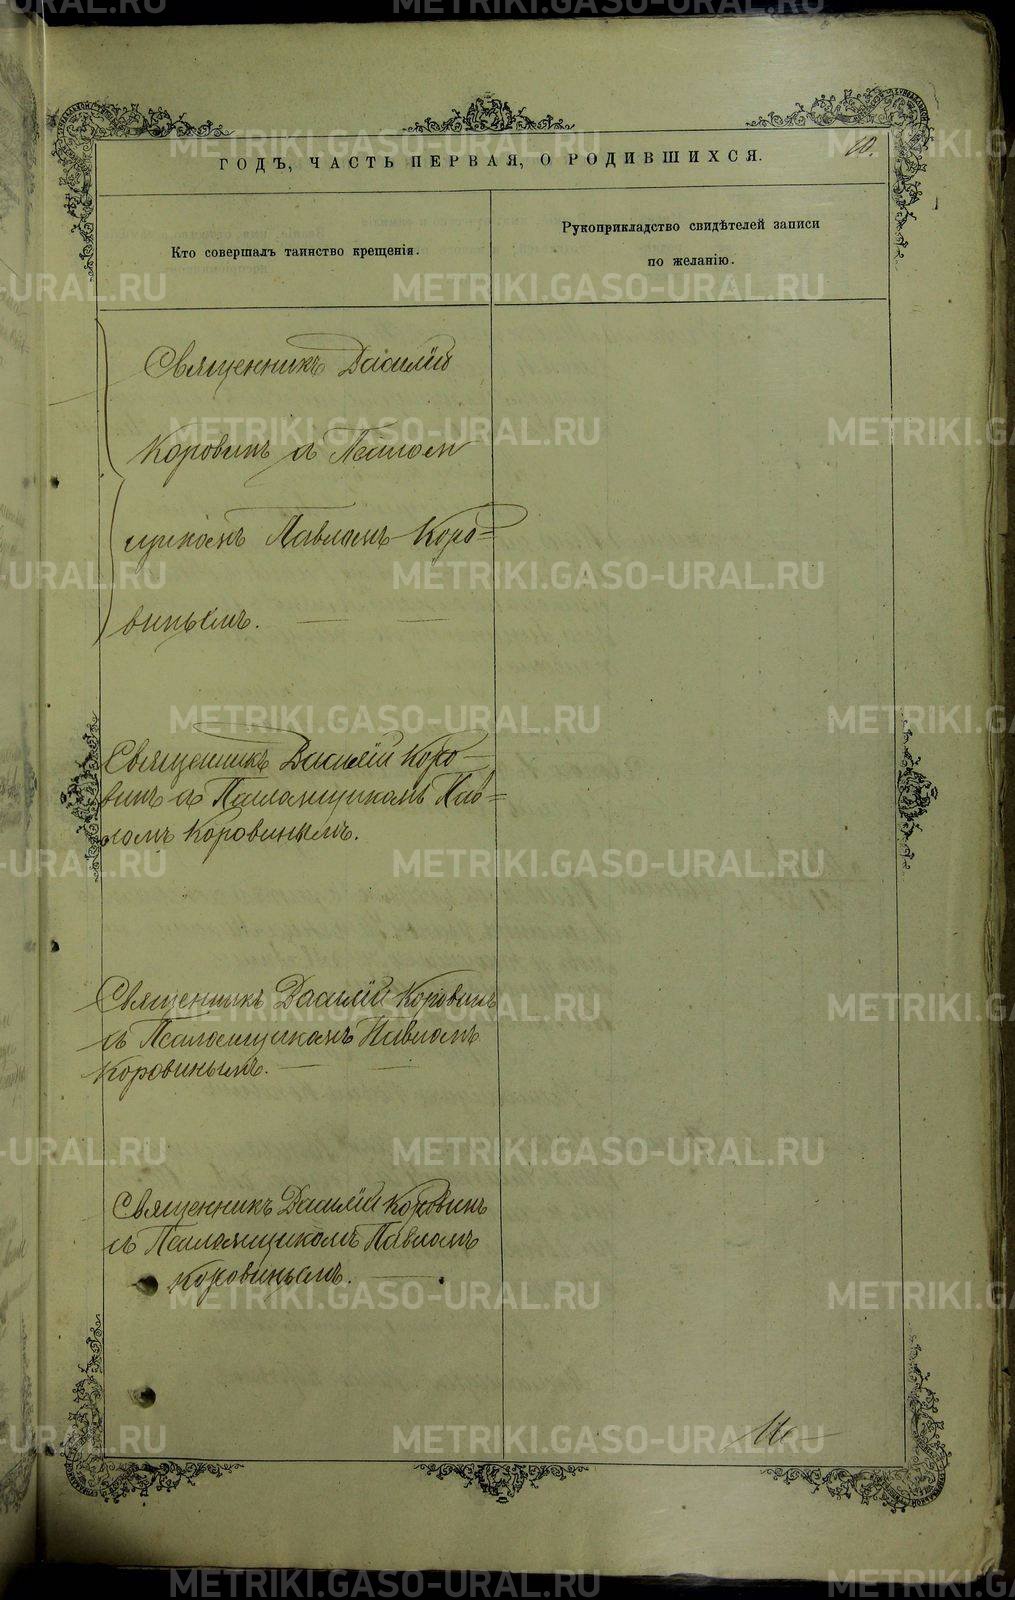 10.
ГОДЪ, ЧАСТЬ ПЕРВАЯ, О РОДИВШИХСЯ.
Кто совершалъ таинство крещенія.
Рукоприкладство свидѣтелей записи
по желанію.
Священникъ Василій
Коровинъ съ Псалом
щикомъ Павломъ Коро=
винымъ.
Священникъ Василій Коро-
винъ съ Псаломщикомъ Пав=
ломъ Коровинымъ.
Священникъ Василій Коровинъ
съ Псаломщикомъ Павломъ
Коровинымъ.
Священникъ Василій Коровинъ
съ Псаломщикомъ Павломъ
Коровинымъ.
METRIKI.GASO-URAL.RU